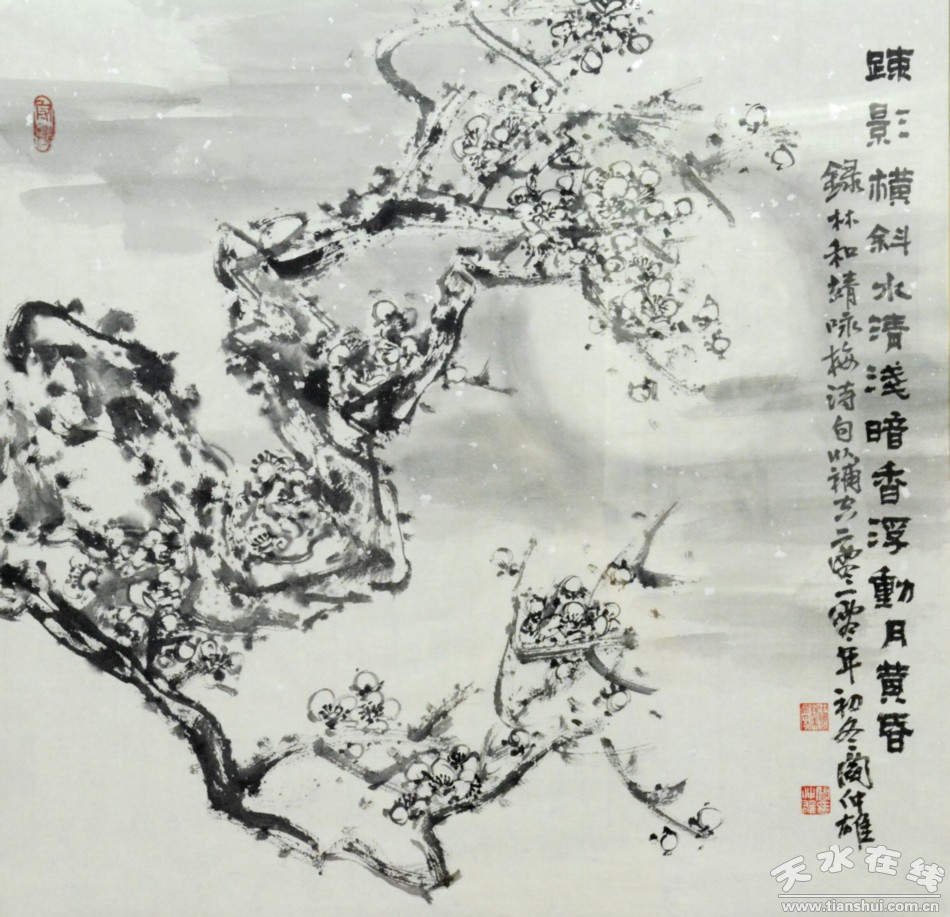 踈影横斜水清淺暗香浮動月黄昏
録林和靖咏梅詩句以補空二零一零年初冬閻仲雄
天水在线
www.tianshui.com.cn